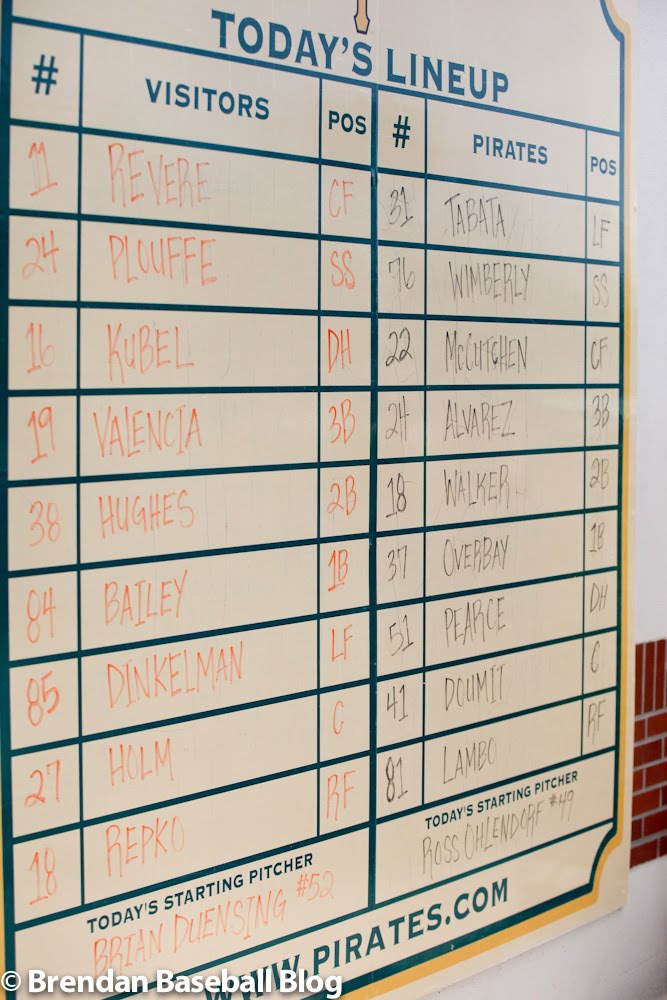 TODAY'S LINEUP
# VISITORS POS # PIRATES POS
11 REVERE CF 31 TABATA LF
24 PLOUFFE SS 76 WIMBERLY SS
16 KUBEL DH 22 McCUTCHEN CF
19 VALENCIA 3B 24 ALVAREZ 3B
38 HUGHES 2B 18 WALKER 2B
84 BAILEY 1B 37 OVERBAY 1B
85 DINKELMAN LF 51 PEARCE DH
27 HOLM C 41 DOUMIT C
18 REPKO RF 81 LAMBO RF
TODAY'S STARTING PITCHER
BRIAN DUENSING #52
TODAY'S STARTING PITCHER
ROSS OHLENDORF #49
WWW.PIRATES.COM
© Brendan Baseball Blog